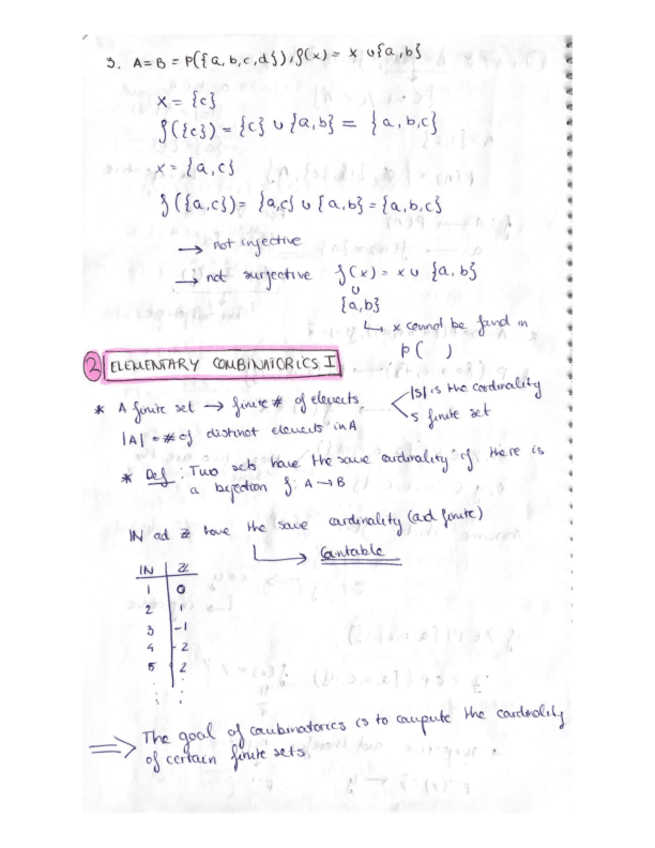 3. A=B = P({a,b,c,d}), f(x) = x ∪ {a,b}
x = {c}
f({c}) = {c} ∪ {a,b} = {a,b,c}
x = {a,c}
f({a,c}) = {a,c} ∪ {a,b} = {a,b,c}
→ not injective
→ not surjective f(x) = x ∪ {a,b}
∪
{a,b}
↳ x cannot be fand in
P( )
2 ELEMENTARY COMBINATORICS I
* A finite set → finite # of elements
|S| is the cardinality
s finite set
|A| = # of distinct elements in A
* Def: Two sets have the same cardinality if there is
a bijection f: A→B
IN ad Z have the same cardinality (ad finite)
↳ Cantable
IN Z
1 0
2 1
3 -1
4 -2
5 2
⇒ The goal of combinatorics is to compute the cardinality
of certain finite sets.